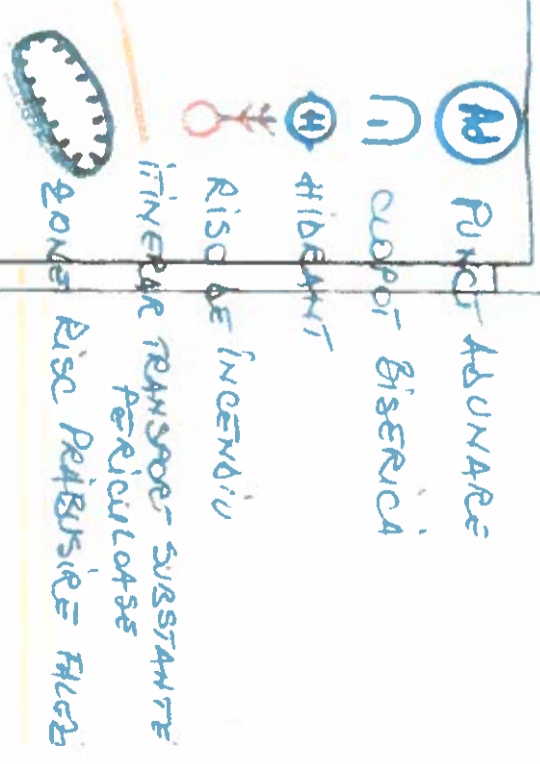 Ad PUNCT ADUNARE
CLOPOT BISERICĂ
H HIDRANT
RISC DE ÎNCENDIU
ITINERAR TRANSPORT SUBSTANTE
PERICULOASE
ZONE RISC PRĂBUSIRE FALEZĂ